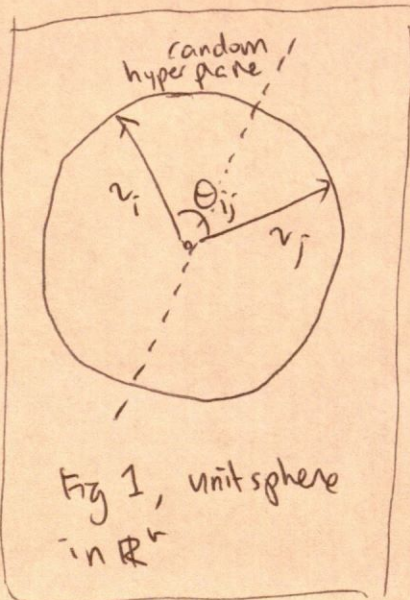 random
hyperplane
θij
vi
vj
Fig 1, unit sphere
in ℝⁿ